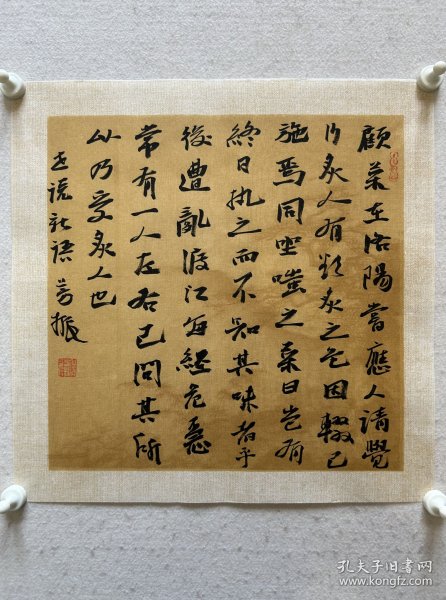 顧榮在洛陽嘗應人請覺
行炙人有欲炙之色因輟己
施焉同坐嗤之榮曰豈有
終日執之而不知其味者乎
後遭亂渡江每經危急
常有一人左右己問其所
以乃受炙人也
世说新语
孔夫子旧书网
www.kongfz.com